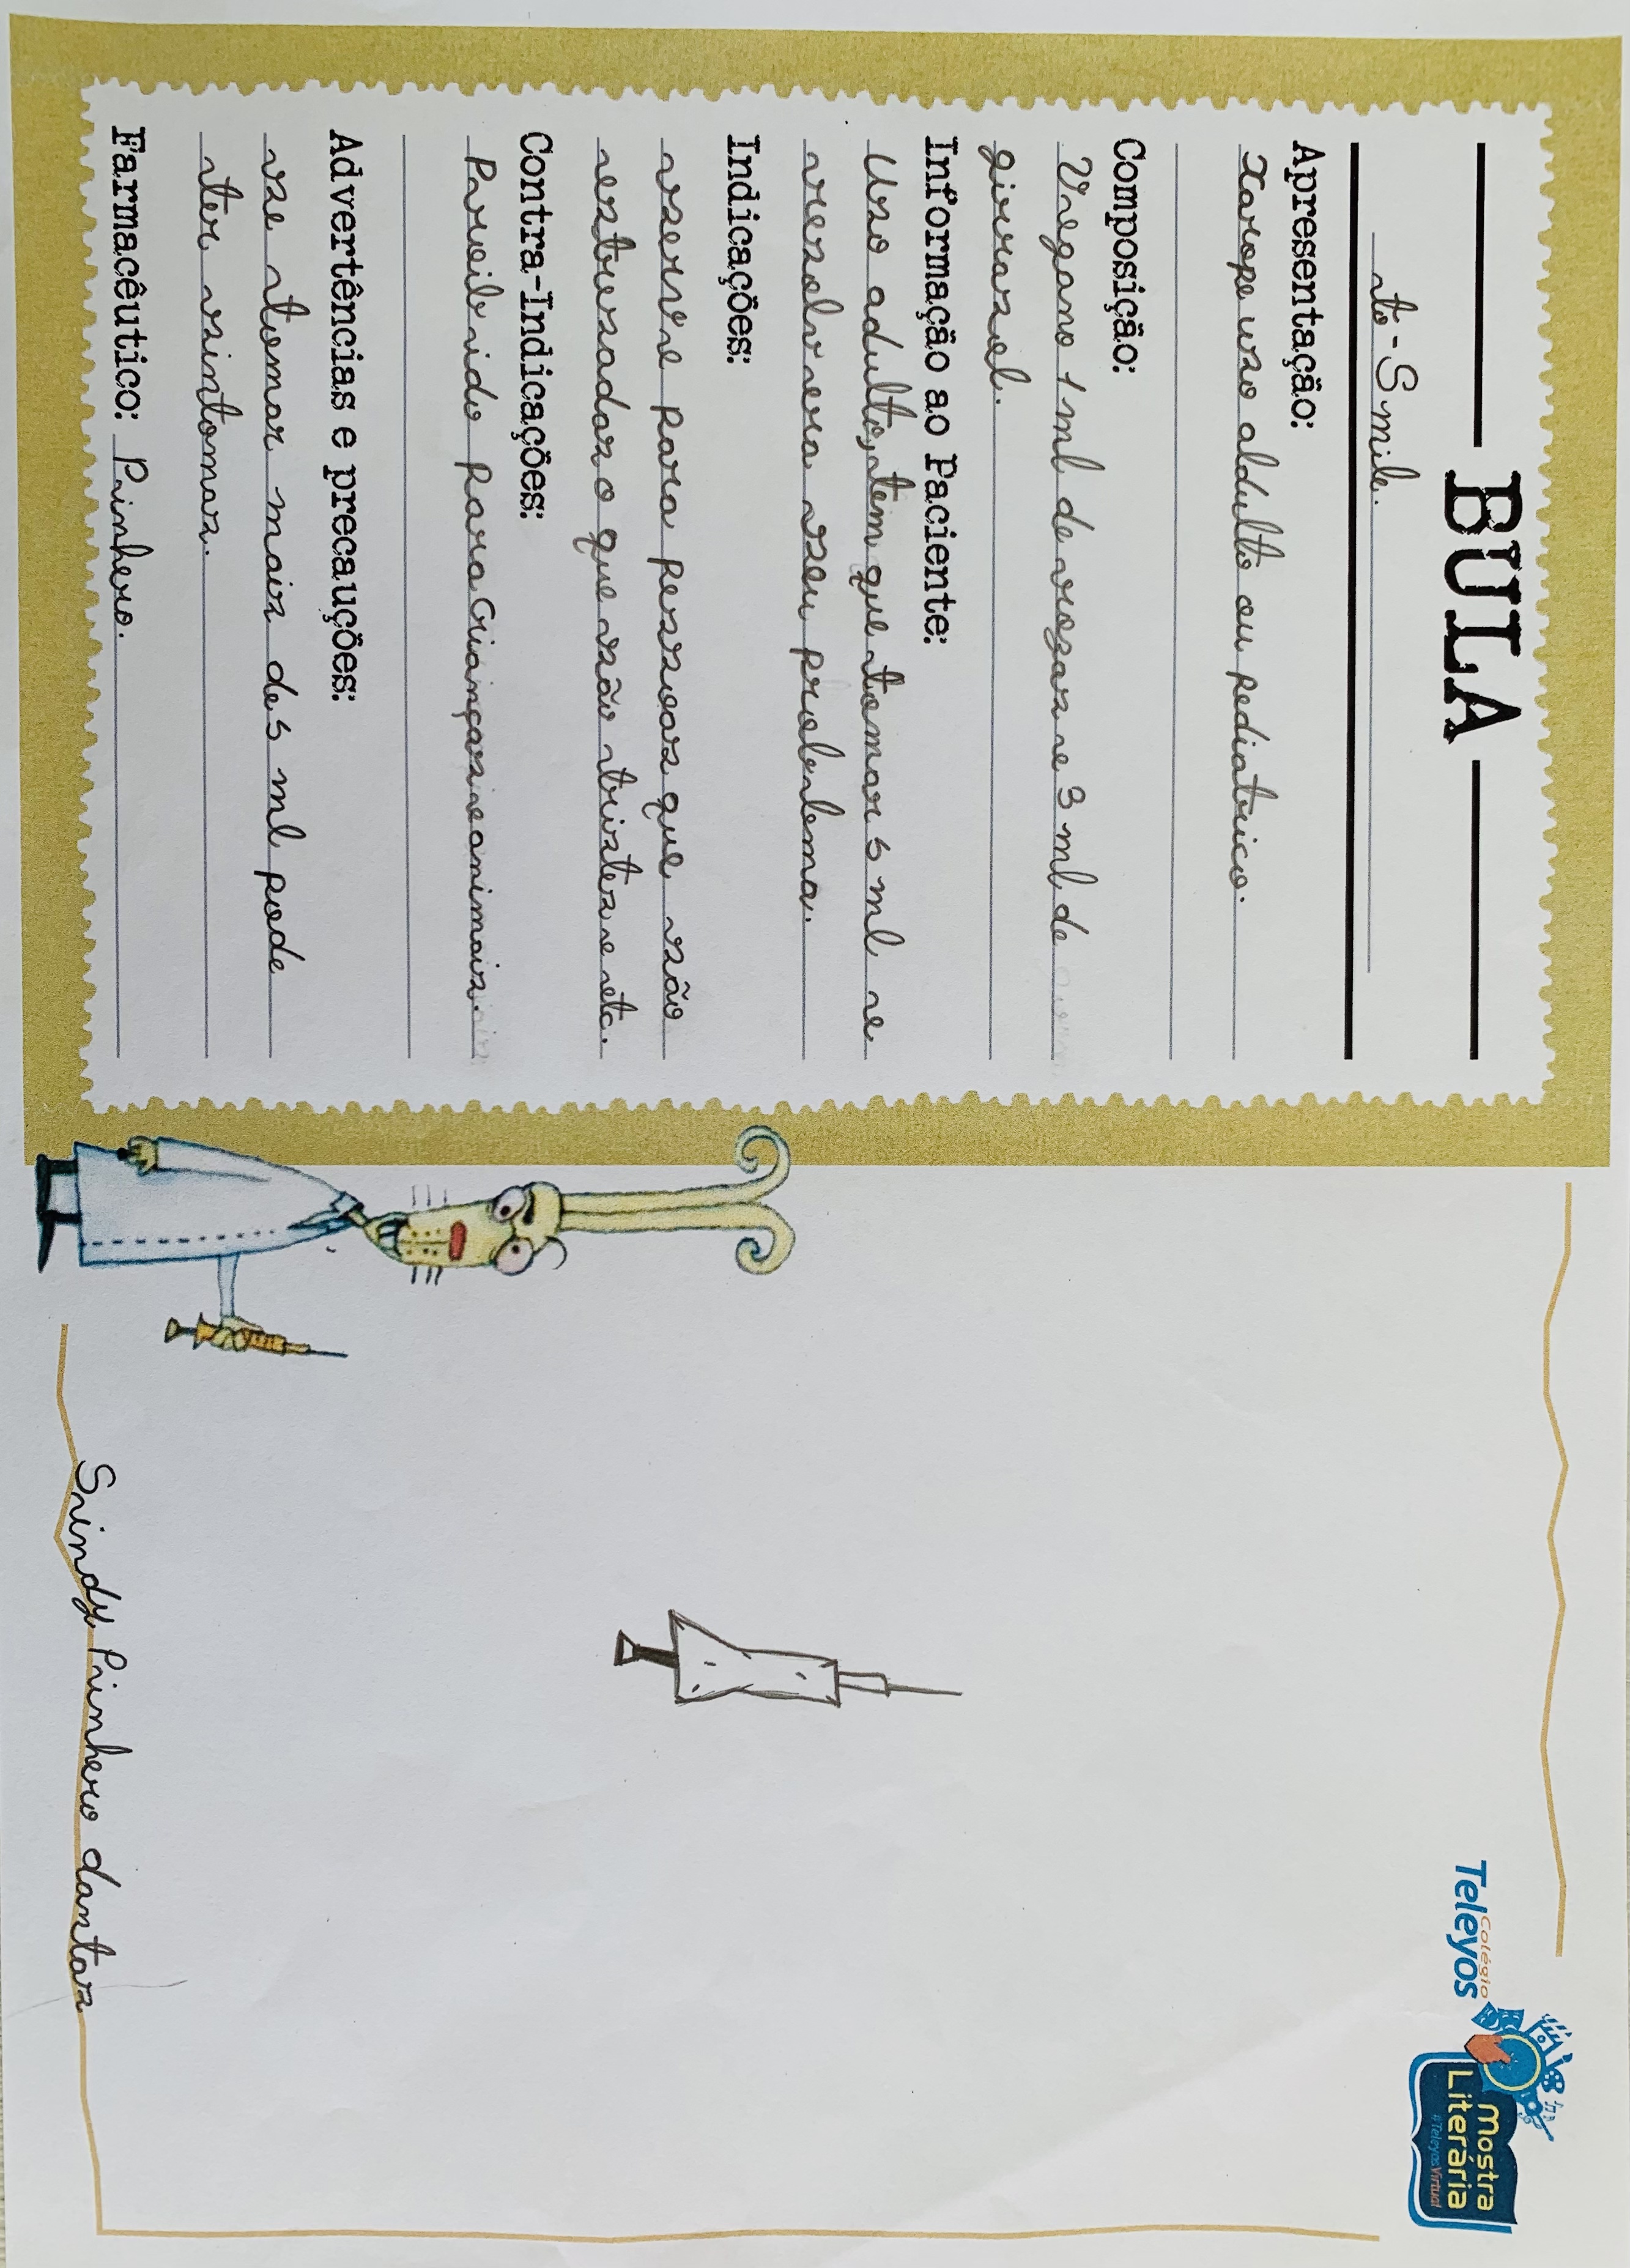 BULA
to-Smile.
Apresentação:
Xarope uso aldulto ou pediatrico.
Composição:
Vregano 1 ml de rosas e 3 ml de
girassol.
Informação ao Paciente:
Uso adulto, tem que tomar 5 ml e
resolvera seu problema.
Indicações:
serve para pessoas que são
estresadas o que são tristes e etc.
Contra-Indicações:
Proibido para Crianças e animais.
Advertências e precauções:
se tomar mais de 5 ml pode
ter sintomas.
Farmacêutico: Pinhero.
Colégio
Teleyos
Mostra
Literária
#TeleyosVirtual
Sindy Pinhero dantas